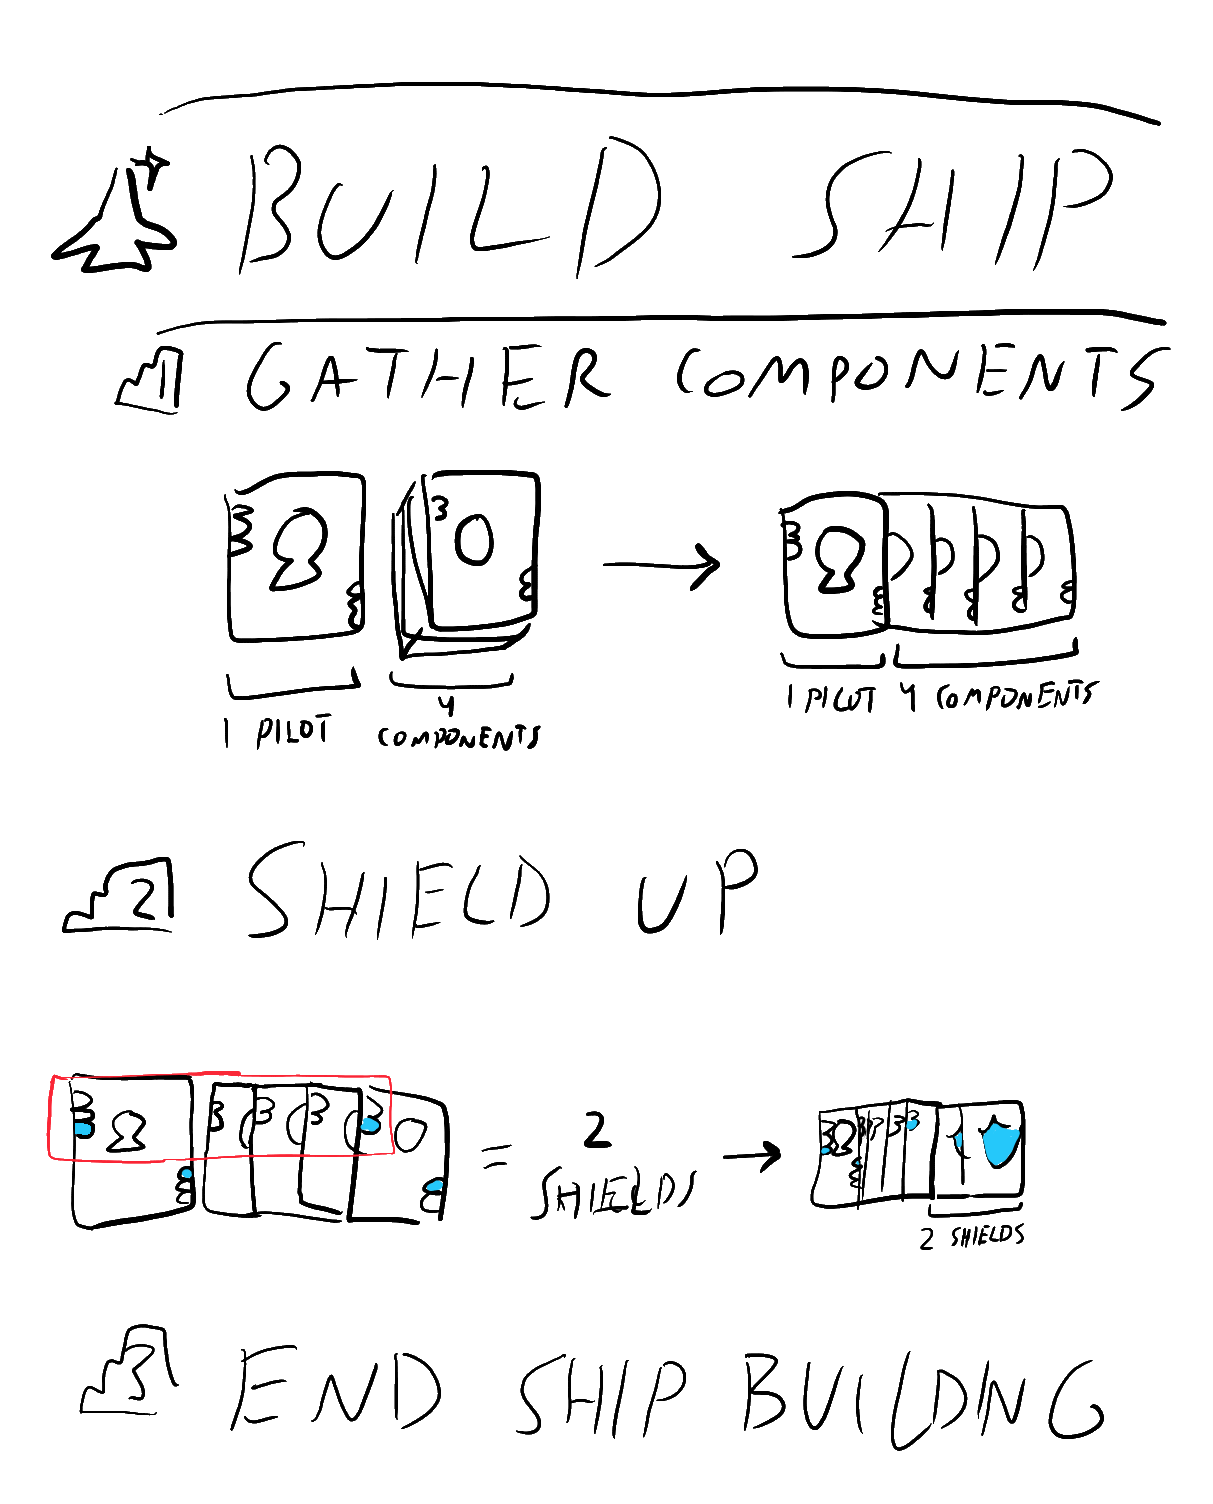 BUILD SHIP
1 GATHER COMPONENTS
1 PILOT
4 COMPONENTS
1 PILOT 4 COMPONENTS
2 SHIELD UP
= 2 SHIELDS
2 SHIELDS
3 END SHIP BUILDING